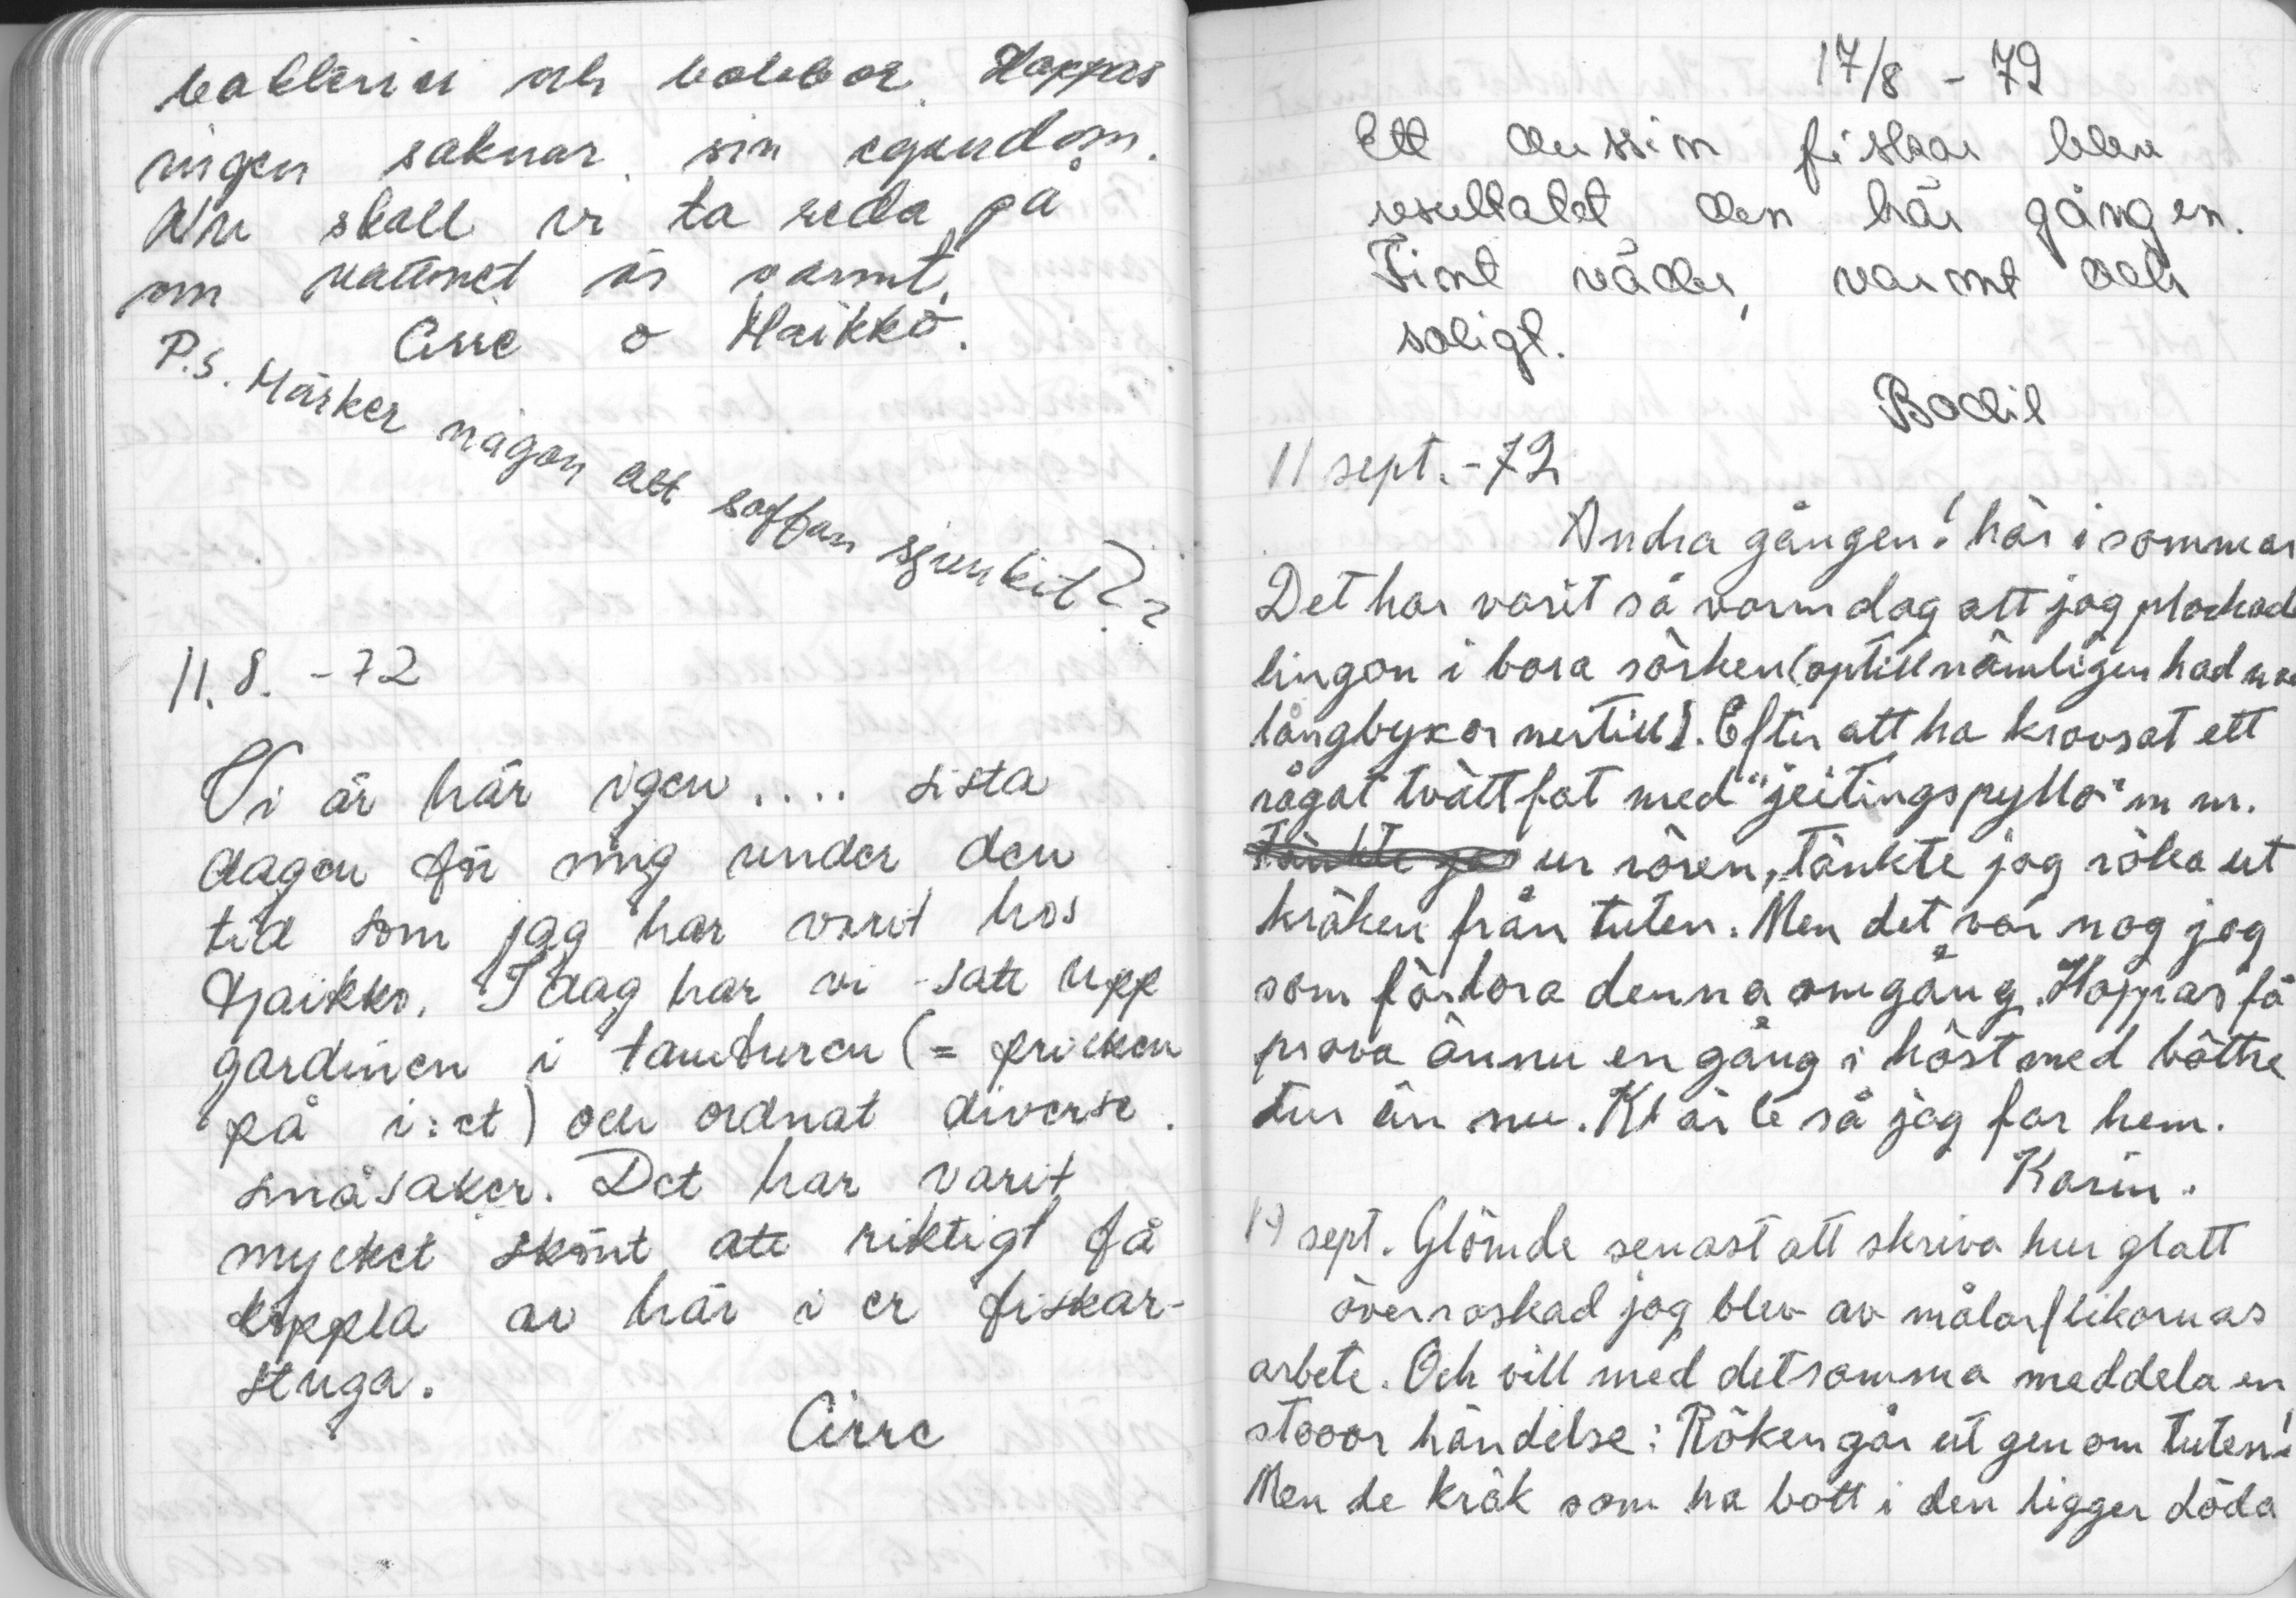 och Hoppas
ingen saknar sin egendom.
Nu skall vi ta reda på
om vattnet är varmt.
Cirre o Maikko.
P.S. Märker någon att soffan sjunkit??
11.8. -72
Vi är här igen.... sista
dagen för mig under den
tid som jag har varit hos
Maikko. Idag har vi satt upp
gardinen i tamburen (= pricken
på i:et) och ordnat diverse
småsaker. Det har varit
mycket skönt att riktigt få
koppla av här i er fiskar-
stuga.
Cirre
17/8 - 72
Ett dussin fiskar blev
resultatet den här gången.
Fint väder, varmt och
soligt.
Bodil
11 sept. -72
Andra gången! här i sommar
Det har varit så varm dag att jag plockad
lingon i bara särken (optill nämligen had
långbyxor nertill). Efter att ha kravsat ett
något tvättfat med "jeitingspyllo" m m.
tänkte jag ur rören, tänkte jag röka ut
kräken från tuten. Men det var nog jag
som förlora denna omgång. Hoppas få
prova ännu en gång i höst med bättre
tur än nu. Kl är 6 så jag far hem.
Karin.
sept. Glömde senast att skriva hur glatt
överraskad jag blev av målarflikornas
arbete. Och vill med detsamma meddela en
stooor händelse: Röken går ut genom tuten!
Men de kräk som ha bott i den ligger döda